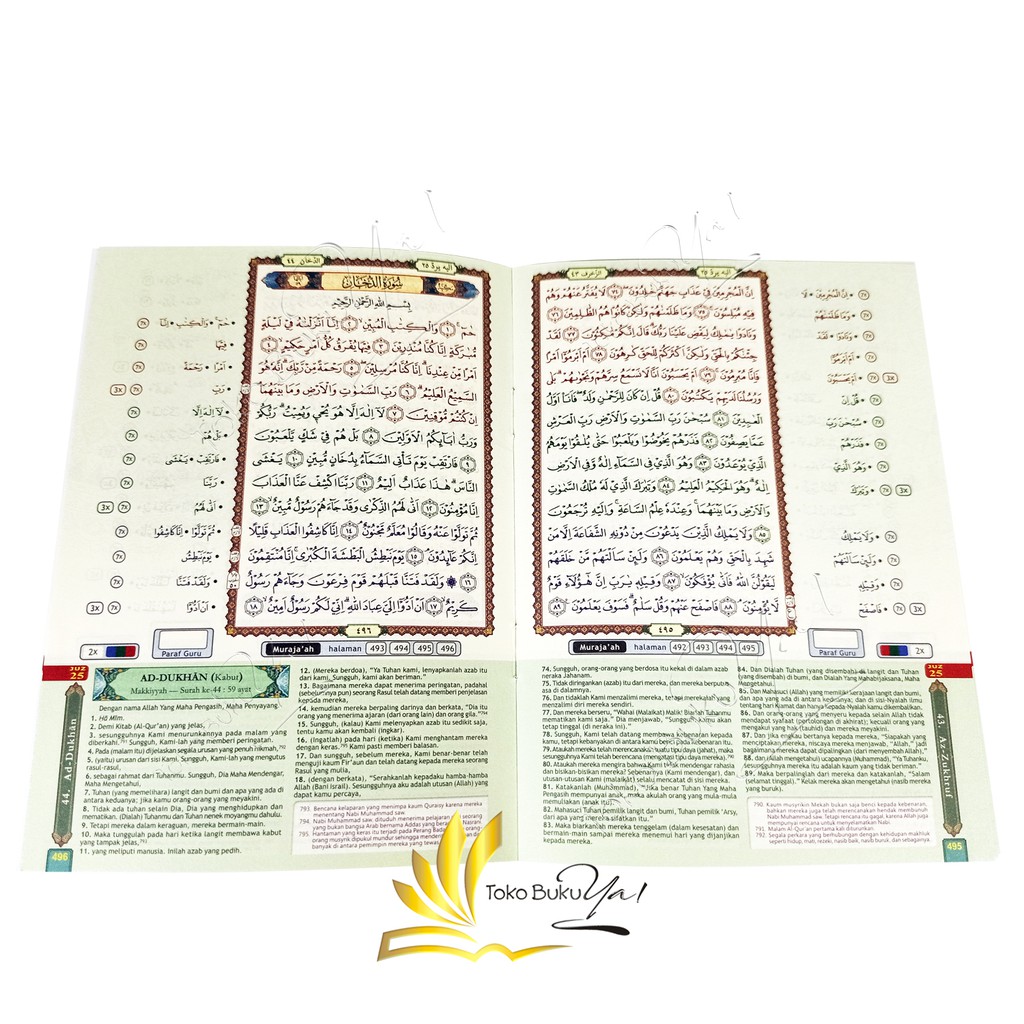 الزخرف ٤٣
اليه يردّ ٢٥
اِنَّ الْمُجْرِمِيْنَ فِيْ عَذَابِ جَهَنَّمَ خٰلِدُوْنَ ۝٧٤ لَا يُفَتَّرُ عَنْهُمْ وَهُمْ
فِيْهِ مُبْلِسُوْنَ ۝٧٥ وَمَا ظَلَمْنٰهُمْ وَلٰكِنْ كَانُوْا هُمُ الظّٰلِمِيْنَ ۝٧٦
وَنَادَوْا يٰمٰلِكُ لِيَقْضِ عَلَيْنَا رَبُّكَ قَالَ اِنَّكُمْ مّٰكِثُوْنَ ۝٧٧ لَقَدْ
جِئْنٰكُمْ بِالْحَقِّ وَلٰكِنَّ اَكْثَرَكُمْ لِلْحَقِّ كٰرِهُوْنَ ۝٧٨ اَمْ اَبْرَمُوْٓا اَمْرًا
فَاِنَّا مُبْرِمُوْنَ ۝٧٩ اَمْ يَحْسَبُوْنَ اَنَّا لَا نَسْمَعُ سِرَّهُمْ وَنَجْوٰىهُمْ بَلٰى
وَرُسُلُنَا لَدَيْهِمْ يَكْتُبُوْنَ ۝٨٠ قُلْ اِنْ كَانَ لِلرَّحْمٰنِ وَلَدٌ فَاَنَا۠ اَوَّلُ
الْعٰبِدِيْنَ ۝٨١ سُبْحٰنَ رَبِّ السَّمٰوٰتِ وَالْاَرْضِ رَبِّ الْعَرْشِ
عَمَّا يَصِفُوْنَ ۝٨٢ فَذَرْهُمْ يَخُوْضُوْا وَيَلْعَبُوْا حَتّٰى يُلٰقُوْا يَوْمَهُمُ
الَّذِيْ يُوْعَدُوْنَ ۝٨٣ وَهُوَ الَّذِيْ فِى السَّمَاۤءِ اِلٰهٌ وَّفِى الْاَرْضِ
اِلٰهٌ وَهُوَ الْحَكِيْمُ الْعَلِيْمُ ۝٨٤ وَتَبٰرَكَ الَّذِيْ لَهٗ مُلْكُ السَّمٰوٰتِ
وَالْاَرْضِ وَمَا بَيْنَهُمَا وَعِنْدَهٗ عِلْمُ السَّاعَةِ وَاِلَيْهِ تُرْجَعُوْنَ
۝٨٥ وَلَا يَمْلِكُ الَّذِيْنَ يَدْعُوْنَ مِنْ دُوْنِهِ الشَّفَاعَةَ اِلَّا مَنْ
شَهِدَ بِالْحَقِّ وَهُمْ يَعْلَمُوْنَ ۝٨٦ وَلَىِٕنْ سَاَلْتَهُمْ مَّنْ خَلَقَهُمْ
لَيَقُوْلُنَّ اللّٰهُ فَاَنّٰى يُؤْفَكُوْنَ ۝٨٧ وَقِيْلِهٖ يٰرَبِّ اِنَّ هٰٓؤُلَاۤءِ قَوْمٌ
لَّا يُؤْمِنُوْنَ ۝٨٨ فَاصْفَحْ عَنْهُمْ وَقُلْ سَلٰمٌ فَسَوْفَ يَعْلَمُوْنَ ۝٨٩
٤٩٥
• اِنَّ الْمُجْرِمِيْنَ • لَا 7x
• وَمَا ظَلَمْنٰهُمْ 7x
• وَنَادَوْا • لَقَدْ 7x
• اَمْ اَبْرَمُوْٓا 7x
• اَمْ يَحْسَبُوْنَ 7x 3x
• قُلْ اِنْ 7x
• سُبْحٰنَ رَبِّ 7x
• فَذَرْهُمْ 7x
• وَهُوَ الَّذِيْ 7x
• وَتَبٰرَكَ 7x 3x
• وَلَا يَمْلِكُ 7x
• وَلَىِٕنْ سَاَلْتَهُمْ 7x
• وَقِيْلِهٖ 7x
• فَاصْفَحْ 7x 3x
Muraja'ah halaman 492 493 494 495
Paraf Guru
2x
JUZ
25
43. Az-Zukhruf
74. Sungguh, orang-orang yang berdosa itu kekal di dalam azab
neraka Jahanam.
75. Tidak diringankan (azab) itu dari mereka, dan mereka berputus
asa di dalamnya.
76. Dan tidaklah Kami menzalimi mereka, tetapi merekalah yang
menzalimi diri mereka sendiri.
77. Dan mereka berseru, "Wahai (Malaikat) Malik! Biarlah Tuhanmu
mematikan kami saja." Dia menjawab, "Sungguh, kamu akan
tetap tinggal (di neraka ini)."
78. Sungguh, Kami telah datang membawa kebenaran kepada
kamu, tetapi kebanyakan di antara kamu benci pada kebenaran itu.
79. Ataukah mereka telah merencanakan suatu tipu daya (jahat), maka
sesungguhnya Kami telah berencana (mengatasi tipu daya mereka).
80. Ataukah mereka mengira bahwa Kami tidak mendengar rahasia
dan bisikan-bisikan mereka? Sebenarnya (Kami mendengar), dan
utusan-utusan Kami (malaikat) selalu mencatat di sisi mereka.
81. Katakanlah (Muhammad), "Jika benar Tuhan Yang Maha
Pengasih mempunyai anak, maka akulah orang yang mula-mula
memuliakan (anak itu)."
82. Mahasuci Tuhan pemilik langit dan bumi, Tuhan pemilik 'Arsy,
dari apa yang mereka sifatkan itu."
83. Maka biarkanlah mereka tenggelam (dalam kesesatan) dan
bermain-main sampai mereka menemui hari yang dijanjikan
kepada mereka.
84. Dan Dialah Tuhan (yang disembah) di langit dan Tuhan
(yang disembah) di bumi, dan Dialah Yang Mahabijaksana, Maha
Mengetahui.
85. Dan Mahasuci (Allah) yang memiliki kerajaan langit dan bumi,
dan apa yang ada di antara keduanya; dan di sisi-Nyalah ilmu
tentang hari Kiamat dan hanya kepada-Nyalah kamu dikembalikan.
86. Dan orang-orang yang menyeru kepada selain Allah tidak
mendapat syafaat (pertolongan di akhirat); kecuali orang yang
mengakui yang hak (tauhid) dan mereka meyakini.
87. Dan jika kamu bertanya kepada mereka, "Siapakah yang
menciptakan mereka, niscaya mereka menjawab, "Allah," jadi
bagaimana mereka dapat dipalingkan (dari menyembah Allah),
88. dan (Allah mengetahui) ucapannya (Muhammad), "Ya Tuhanku,
sesungguhnya mereka itu adalah kaum yang tidak beriman."
89. Maka berpalinglah dari mereka dan katakanlah, "Salam
(selamat tinggal)." Kelak mereka akan mengetahui (nasib mereka
yang buruk).
790. Kaum musyrikin Mekah bukan saja benci kepada kebenaran,
bahkan mereka juga merencanakan hendak membunuh
Nabi Muhammad saw. Tetapi rencana itu gagal, karena Allah juga
mempunyai rencana untuk menyelamatkan Nabi.
791. Malam Al-Qur'an pertama kali diturunkan.
792. Segala perkara yang berhubungan dengan kehidupan makhluk
seperti: hidup, mati, rezeki, nasib baik, nasib buruk, dan sebagainya.
495
الدخان ٤٤
اليه يردّ ٢٥
سُوْرَةُ الدُّخَانِ
بِسْمِ اللّٰهِ الرَّحْمٰنِ الرَّحِيْمِ
حٰمۤ ۝١ وَالْكِتٰبِ الْمُبِيْنِ ۝٢ اِنَّآ اَنْزَلْنٰهُ فِيْ لَيْلَةٍ
مُّبٰرَكَةٍ اِنَّا كُنَّا مُنْذِرِيْنَ ۝٣ فِيْهَا يُفْرَقُ كُلُّ اَمْرٍ حَكِيْمٍ ۝٤
اَمْرًا مِّنْ عِنْدِنَا اِنَّا كُنَّا مُرْسِلِيْنَ ۝٥ رَحْمَةً مِّنْ رَّبِّكَ اِنَّهٗ هُوَ
السَّمِيْعُ الْعَلِيْمُ ۝٦ رَبِّ السَّمٰوٰتِ وَالْاَرْضِ وَمَا بَيْنَهُمَا
اِنْ كُنْتُمْ مُّوْقِنِيْنَ ۝٧ لَآ اِلٰهَ اِلَّا هُوَ يُحْيٖ وَيُمِيْتُ رَبُّكُمْ
وَرَبُّ اٰبَاۤىِٕكُمُ الْاَوَّلِيْنَ ۝٨ بَلْ هُمْ فِيْ شَكٍّ يَّلْعَبُوْنَ
۝٩ فَارْتَقِبْ يَوْمَ تَأْتِى السَّمَاۤءُ بِدُخَانٍ مُّبِيْنٍ ۝١٠ يَغْشَى
النَّاسَ هٰذَا عَذَابٌ اَلِيْمٌ ۝١١ رَبَّنَا اكْشِفْ عَنَّا الْعَذَابَ
اِنَّا مُؤْمِنُوْنَ ۝١٢ اَنّٰى لَهُمُ الذِّكْرٰى وَقَدْ جَاۤءَهُمْ رَسُوْلٌ مُّبِيْنٌ ۝١٣
ثُمَّ تَوَلَّوْا عَنْهُ وَقَالُوْا مُعَلَّمٌ مَّجْنُوْنٌ ۝١٤ اِنَّا كَاشِفُوا الْعَذَابِ قَلِيْلًا
اِنَّكُمْ عَاۤىِٕدُوْنَ ۝١٥ يَوْمَ نَبْطِشُ الْبَطْشَةَ الْكُبْرٰى اِنَّا مُنْتَقِمُوْنَ
۝١٦ ۞ وَلَقَدْ فَتَنَّا قَبْلَهُمْ قَوْمَ فِرْعَوْنَ وَجَاۤءَهُمْ رَسُوْلٌ
كَرِيْمٌ ۝١٧ اَنْ اَدُّوْٓا اِلَيَّ عِبَادَ اللّٰهِ اِنِّيْ لَكُمْ رَسُوْلٌ اَمِيْنٌ ۝١٨
٤٩٦
• حٰمۤ • وَالْكِتٰبِ • اِنَّآ 7x
• فِيْهَا 7x
• اَمْرًا • رَحْمَةً 7x
• رَبِّ 7x 3x
• لَآ اِلٰهَ اِلَّا 7x
• بَلْ هُمْ 7x
• فَارْتَقِبْ • يَغْشَى 7x
• رَبَّنَا 7x
• اَنّٰى لَهُمُ 7x 3x
• ثُمَّ تَوَلَّوْا • اِنَّا كَاشِفُوا 7x
• يَوْمَ نَبْطِشُ 7x
• وَلَقَدْ فَتَنَّا 7x
• اَنْ اَدُّوْٓا 7x 3x
2x
Paraf Guru
Muraja'ah halaman 493 494 495 496
JUZ
25
44. Ad-Dukhān
AD-DUKHĀN (Kabut)
Makkiyyah — Surah ke-44 : 59 ayat
Dengan nama Allah Yang Maha Pengasih, Maha Penyayang.
1. Hā Mīm.
2. Demi Kitab (Al-Qur'an) yang jelas,
3. sesungguhnya Kami menurunkannya pada malam yang
diberkahi.791 Sungguh, Kami-lah yang memberi peringatan.
4. Pada (malam itu) dijelaskan segala urusan yang penuh hikmah,792
5. (yaitu) urusan dari sisi Kami. Sungguh, Kami-lah yang mengutus
rasul-rasul,
6. sebagai rahmat dari Tuhanmu. Sungguh, Dia Maha Mendengar,
Maha Mengetahui,
7. Tuhan (yang memelihara) langit dan bumi dan apa yang ada di
antara keduanya; jika kamu orang-orang yang meyakini.
8. Tidak ada tuhan selain Dia, Dia yang menghidupkan dan
mematikan. (Dialah) Tuhanmu dan Tuhan nenek moyangmu dahulu.
9. Tetapi mereka dalam keraguan, mereka bermain-main.
10. Maka tunggulah pada hari ketika langit membawa kabut
yang tampak jelas,793
11. yang meliputi manusia. Inilah azab yang pedih.
12. (Mereka berdoa), "Ya Tuhan kami, lenyapkanlah azab itu
dari kami. Sungguh, kami akan beriman."
13. Bagaimana mereka dapat menerima peringatan, padahal
(sebelumnya pun) seorang Rasul telah datang memberi penjelasan
kepada mereka,
14. kemudian mereka berpaling darinya dan berkata, "Dia itu
orang yang menerima ajaran (dari orang lain) dan orang gila."794
15. Sungguh, (kalau) Kami melenyapkan azab itu sedikit saja,
tentu kamu akan kembali (ingkar).
16. (Ingatlah) pada hari (ketika) Kami menghantam mereka
dengan keras.795 Kami pasti memberi balasan.
17. Dan sungguh, sebelum mereka, Kami benar-benar telah
menguji kaum Fir'aun dan telah datang kepada mereka seorang
Rasul yang mulia,
18. (dengan berkata), "Serahkanlah kepadaku hamba-hamba
Allah (Bani Israil). Sesungguhnya aku adalah utusan (Allah) yang
dapat kamu percaya,
793. Bencana kelaparan yang menimpa kaum Quraisy karena mereka
menentang Nabi Muhammad saw.
794. Nabi Muhammad saw. dituduh menerima pelajaran dari seorang
yang bukan bangsa Arab bernama Addas yang beragama Nasrani.
795. Hantaman yang keras itu terjadi pada Perang Badar
orang musyrik dipukul mundur sehingga menderita
banyak di antara pemimpin mereka yang tewas
496
Toko Buku Ya!